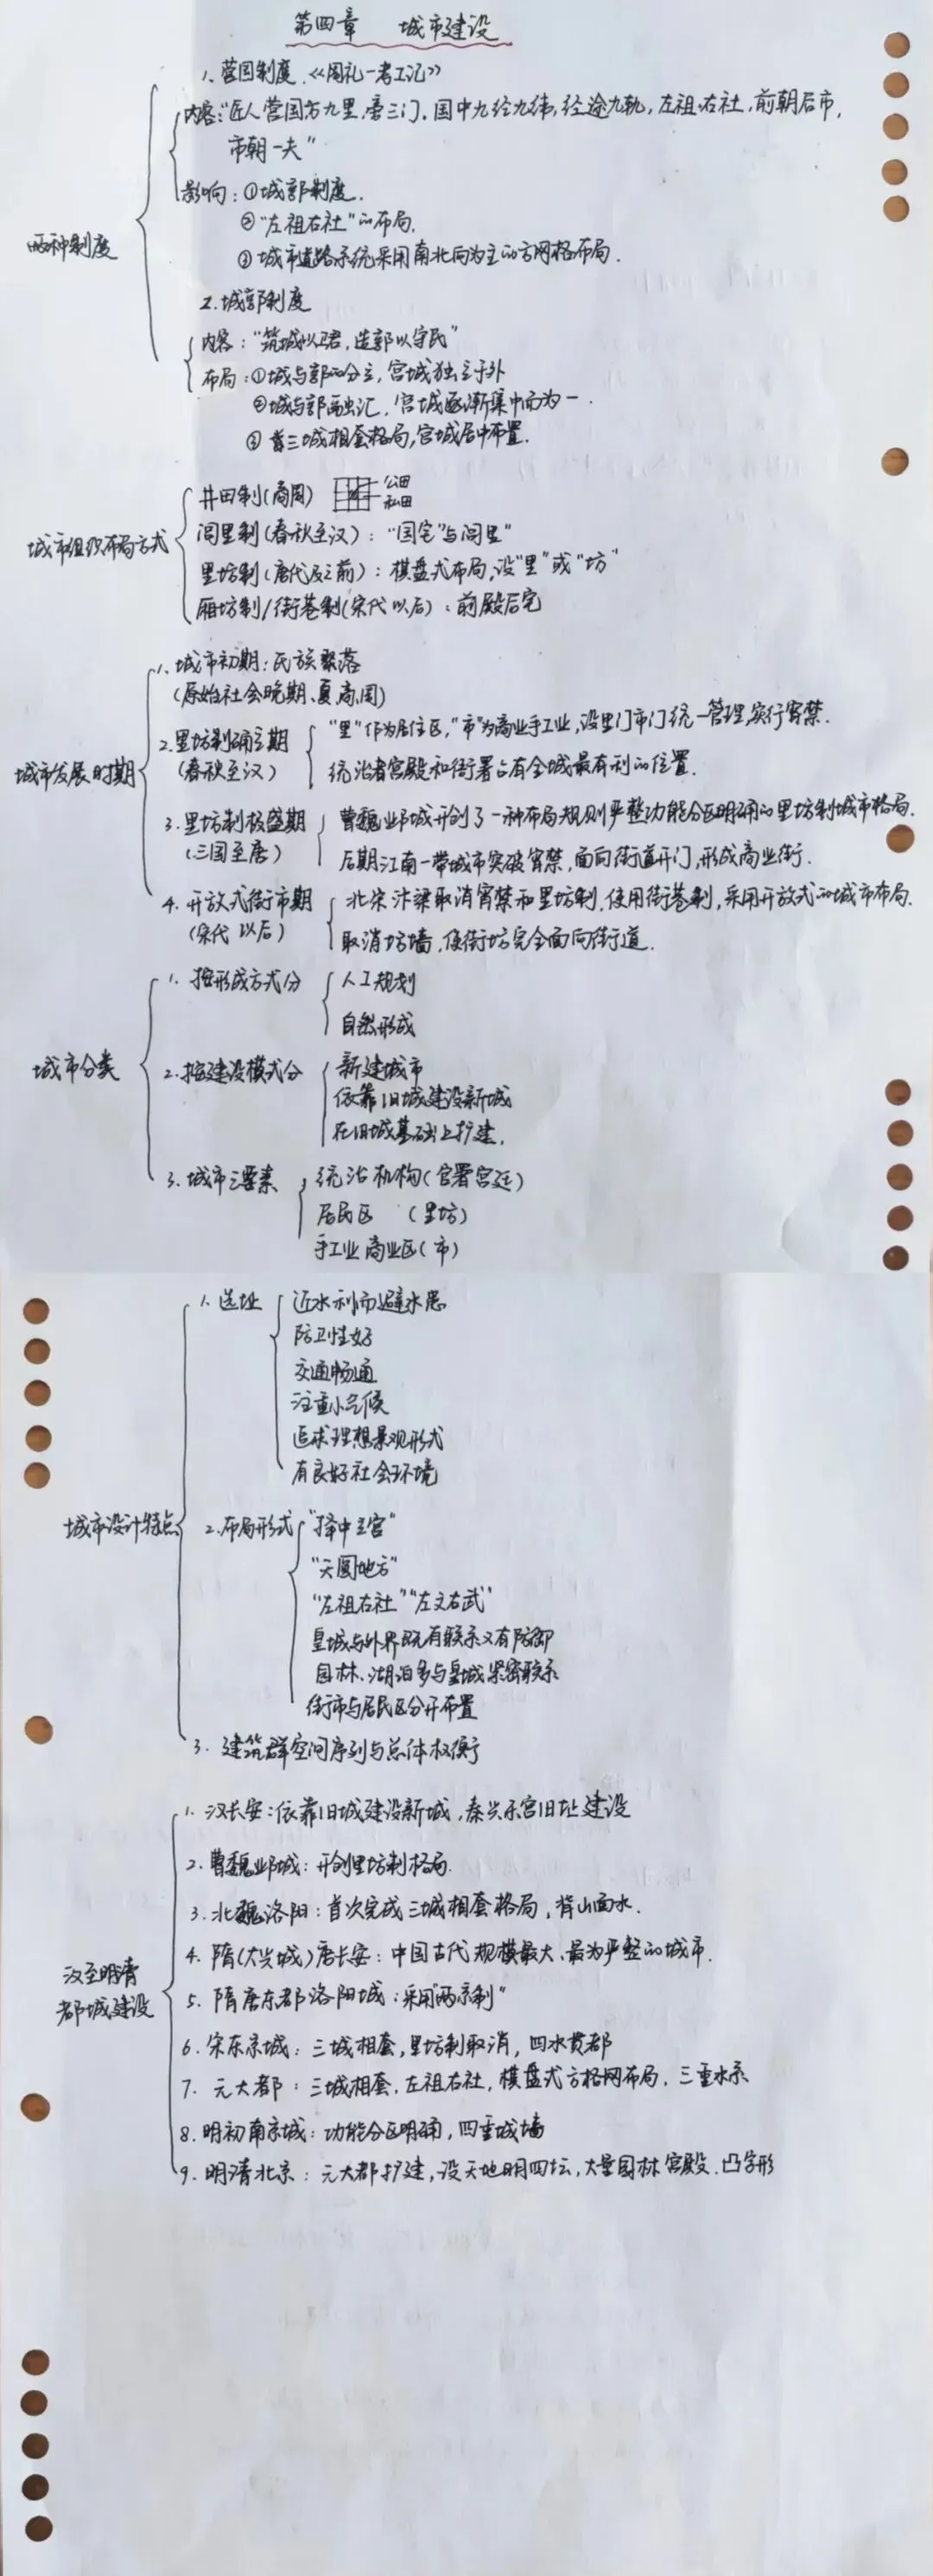 第四章 城市建设
1、营国制度《周礼-考工记》
内容:“匠人营国方九里,旁三门,国中九经九纬,经途九轨,左祖右社,前朝后市,
市朝一夫”
影响:①城郭制度.
②“左祖右社”的布局.
两种制度
③城市道路系统采用南北向为主的方网格布局.
2.城郭制度
内容:“筑城以卫君,造郭以守民”
布局:①城与郭的分立,宫城独立于外
②城与郭融汇,宫城逐渐集中而为一.
③ 三城相套格局,宫城居中布置.
城市组织布局方式
井田制(商周) 公田 私田
闾里制(春秋至汉):“国宅”与闾里”
里坊制(唐代及之前):棋盘式布局,设“里”或“坊”
厢坊制/街巷制(宋代以后):前殿后宅
城市发展时期
1.城市初期:民族聚落
(原始社会晚期、夏商周)
2.里坊制确立期
(春秋至汉)
“里”作为居住区,“市”为商业手工业,设里门市门统一管理,实行宵禁.
统治者宫殿和衙署占有全城最有利的位置.
3.里坊制极盛期
(三国至唐)
曹魏邺城开创了一种布局规则严整功能分区明确的里坊制城市格局.
后期江南一带城市突破宵禁,面向街道开门,形成商业街.
4.开放式街市期
(宋代以后)
北宋汴梁取消宵禁和里坊制,使用街巷制,采用开放式的城市布局.
取消坊墙,使街坊完全面向街道.
城市分类
1.按形成方式分
人工规划
自然形成
2.按建设模式分
新建城市
依靠旧城建设新城
在旧城基础上扩建.
3.城市三要素
统治机构(官署宫廷)
居民区 (里坊)
手工业商业区(市)
城市设计特点
1.选址
近水利而避水患
防卫性好
交通畅通
注重小气候
追求理想景观形式
有良好社会环境
2.布局形式
“择中立宫”
“天圆地方”
“左祖右社”“左文右武”
皇城与外界既有联系又有防御
园林、湖泊多与皇城紧密联系
街市与居民区分开布置
3.建筑群空间序列与总体权衡
汉至明清
都城建设
1.汉长安:依靠旧城建设新城,秦兴乐宫旧址建设
2.曹魏邺城:开创里坊制格局.
3.北魏洛阳:首次完成三城相套格局,背山面水.
4.隋(大兴城)唐长安:中国古代规模最大、最为严整的城市.
5.隋唐东都洛阳城:采用“两京制”
6.宋东京城:三城相套,里坊制取消,四水贯都
7.元大都:三城相套,左祖右社,棋盘式方格网布局,三重水系
8.明初南京城:功能分区明确,四重城墙
9.明清北京:元大都扩建,设天地日月四坛,大量园林宫殿.凸字形